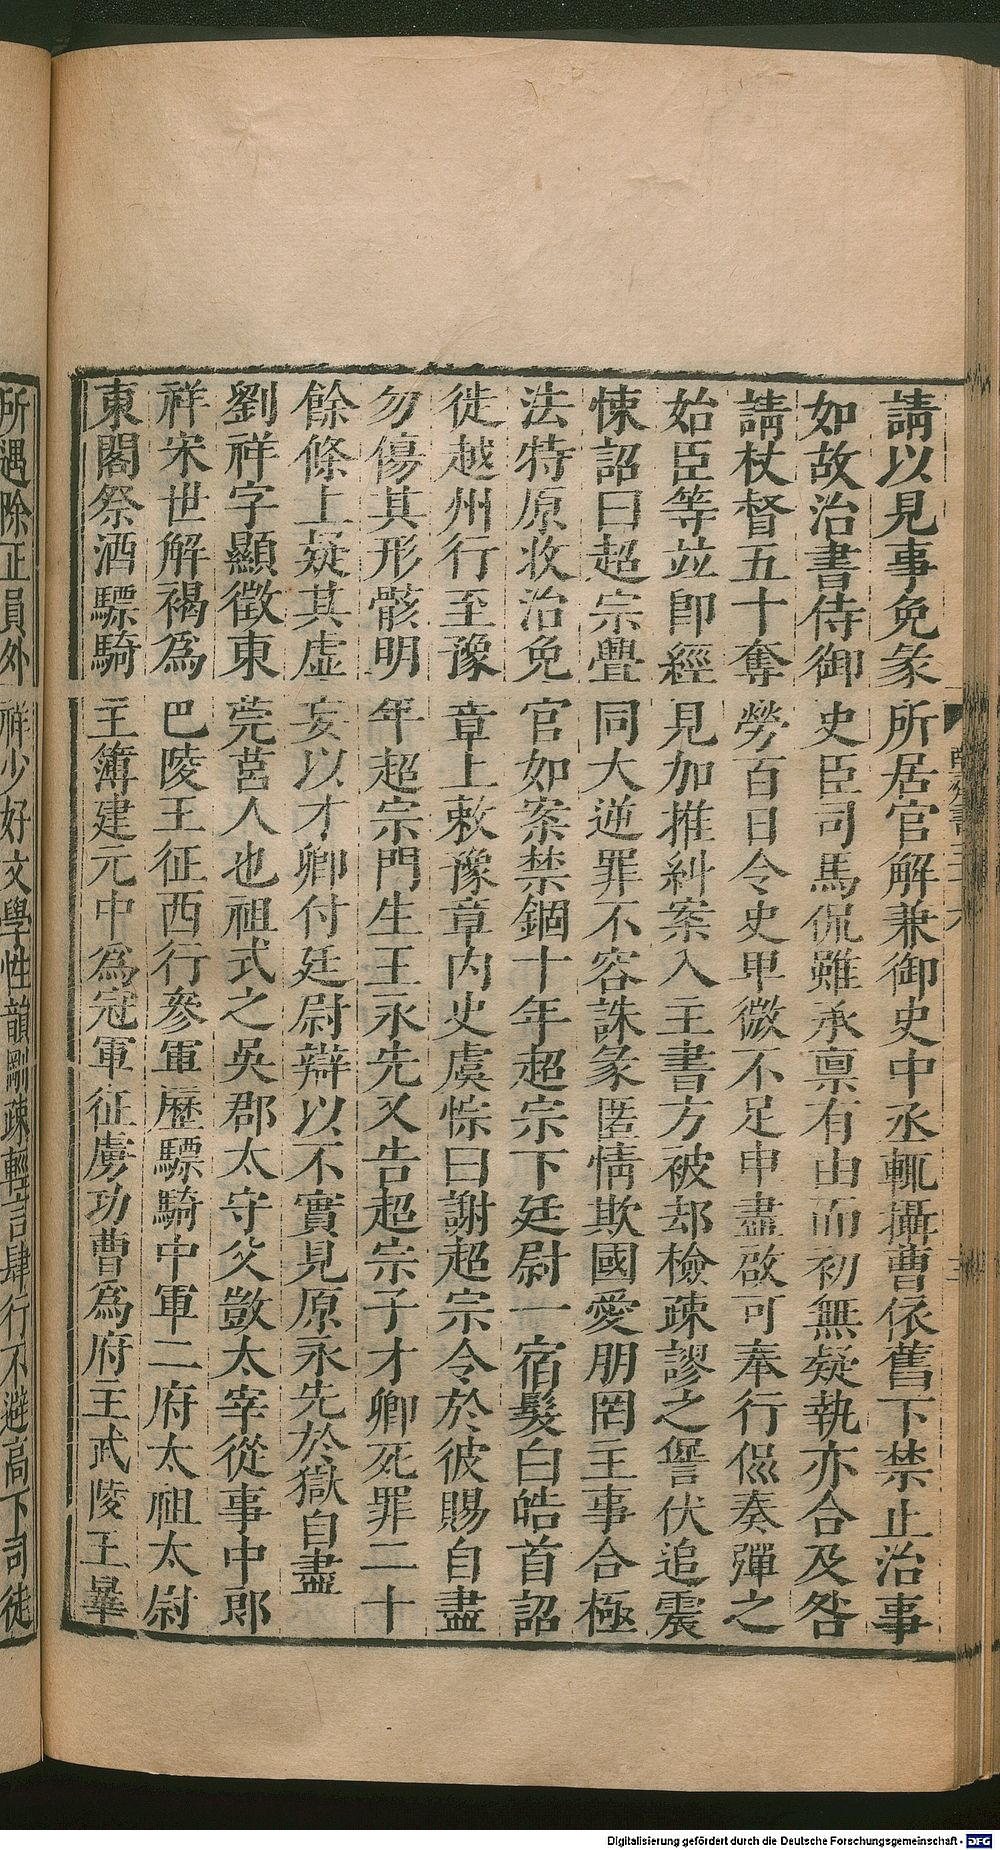 請以見事免彖所居官解兼御史中丞輒攝曹依舊下禁止治事
如故治書侍御史臣司馬侃雖承禀有由而初無疑執亦合及咎
請杖督五十奪勞百日令史卑微不足申盡啟可奉行侃奏彈之
始臣等並即經見加推糾案入主書方被却檢疎謬之諐伏追震
悚詔曰超宗舋同大逆罪不容誅彖匿情欺國愛朋罔主事合極
法特原收治免官如案禁錮十年超宗下廷尉一宿髮白皓首詔
徙越州行至豫章上敕豫章內史虞悰曰謝超宗令於彼賜自盡
勿傷其形骸明年超宗門生王永先又告超宗子才卿死罪二十
餘條上疑其虛妄以才卿付廷尉辯以不實見原永先於獄自盡
劉祥字顯徵東莞莒人也祖式之吳郡太守父敳太宰從事中郎
祥宋世解褐爲巴陵王征西行參軍歷驃騎中軍二府太祖太尉
東閣祭酒驃騎主簿建元中爲冠軍征虜功曹爲府主武陵王曅
所遇除正員外祥少好文學性韻剛疎輕言肆行不避高下司徒
Digitalisierung gefördert durch die Deutsche Forschungsgemeinschaft - DFG